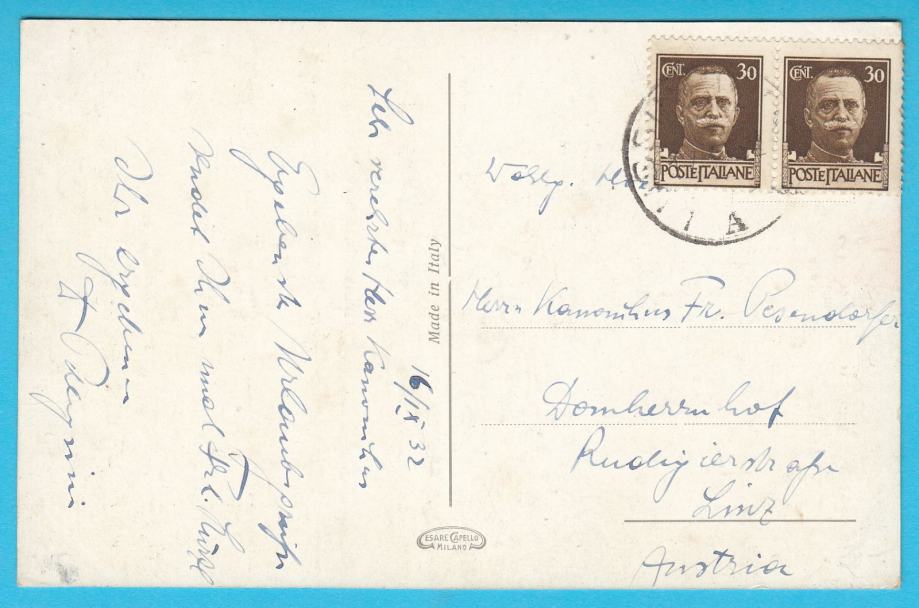 16/IX 32
Sehr verehrter Herr Kanonikus
Ergebenste Urlaubsgrüße
sendet Ihnen und Frl.
Ihr ergebener
Made in Italy
CESARE CAPELLO
MILANO
CENT. 30
POSTE ITALIANE
CENT. 30
POSTE ITALIANE
Wohlg.
Herrn Kanonikus Fr. Pesendorfer
Domherrnhof
Rudigierstraße
Linz
Austria